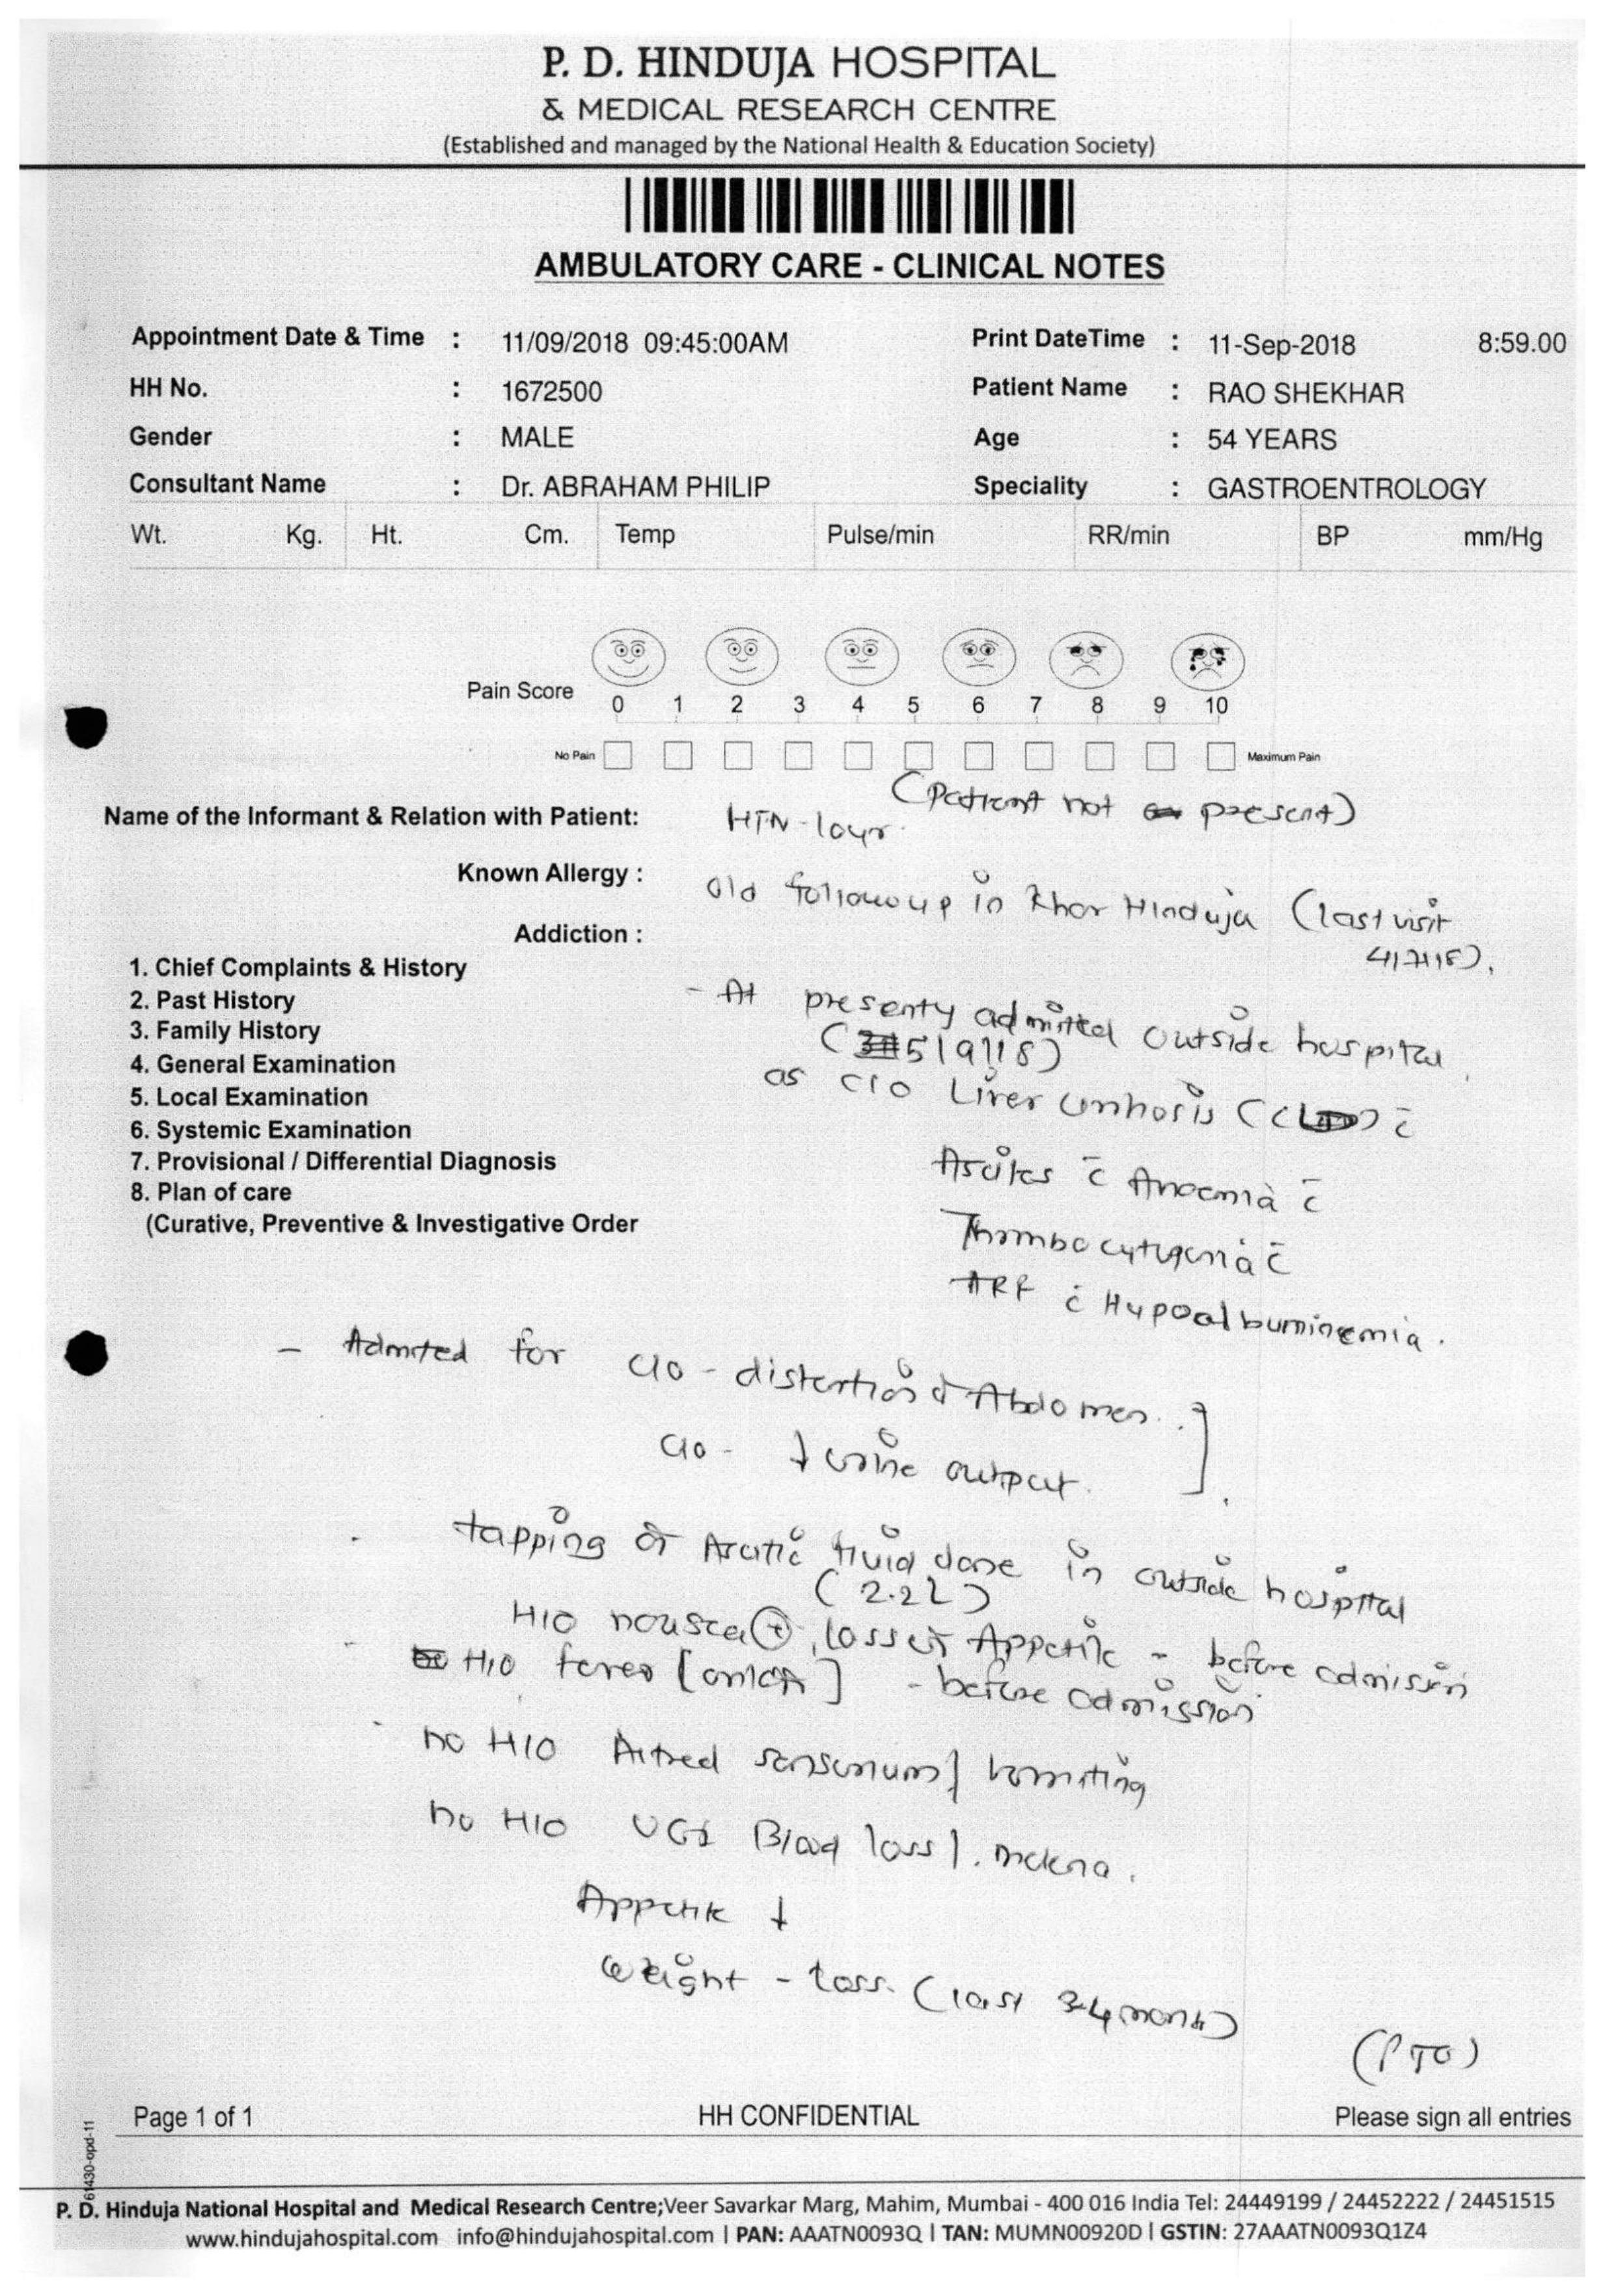 P. D. HINDUJA HOSPITAL
& MEDICAL RESEARCH CENTRE
(Established and managed by the National Health & Education Society)
AMBULATORY CARE - CLINICAL NOTES
Appointment Date & Time : 11/09/2018 09:45:00AM Print DateTime : 11-Sep-2018 8:59.00
HH No. : 1672500 Patient Name : RAO SHEKHAR
Gender : MALE Age : 54 YEARS
Consultant Name : Dr. ABRAHAM PHILIP Speciality : GASTROENTROLOGY
Wt. Kg. Ht. Cm. Temp Pulse/min RR/min BP mm/Hg
Pain Score 0 1 2 3 4 5 6 7 8 9 10
No Pain Maximum Pain
(Patient not present)
Name of the Informant & Relation with Patient: HTN - 10yr.
Known Allergy : Old followup in Khar Hinduja (last visit
4/7/18).
Addiction :
1. Chief Complaints & History
2. Past History
3. Family History
4. General Examination
5. Local Examination
6. Systemic Examination
7. Provisional / Differential Diagnosis
8. Plan of care
(Curative, Preventive & Investigative Order
- At presenty admitted outside hospital
(5/9/18)
as c/o Liver cirrhosis (CLD) c̄
Ascites c̄ Anaemia c̄
Thrombocytopenia c̄
ARF c̄ Hypoalbuminemia.
- Admited for c/o - distention of Abdomen.
c/o - ↓ urine output.
- tapping of Ascitic fluid done in outside hospital
(2.2L)
H/O nausea ⊕, loss of Appetite - before admission
- H/O fever [] - before admission
- no H/O Altred sensorium / vomiting
no H/O UGI Blood loss /. melena.
Appetite ↓
Weight - loss. (last 3-4 month)
(PTO)
Page 1 of 1 HH CONFIDENTIAL Please sign all entries
61430-opd-11
P. D. Hinduja National Hospital and Medical Research Centre;Veer Savarkar Marg, Mahim, Mumbai - 400 016 India Tel: 24449199 / 24452222 / 24451515
www.hindujahospital.com info@hindujahospital.com | PAN: AAATN0093Q | TAN: MUMN00920D | GSTIN: 27AAATN0093Q1Z4